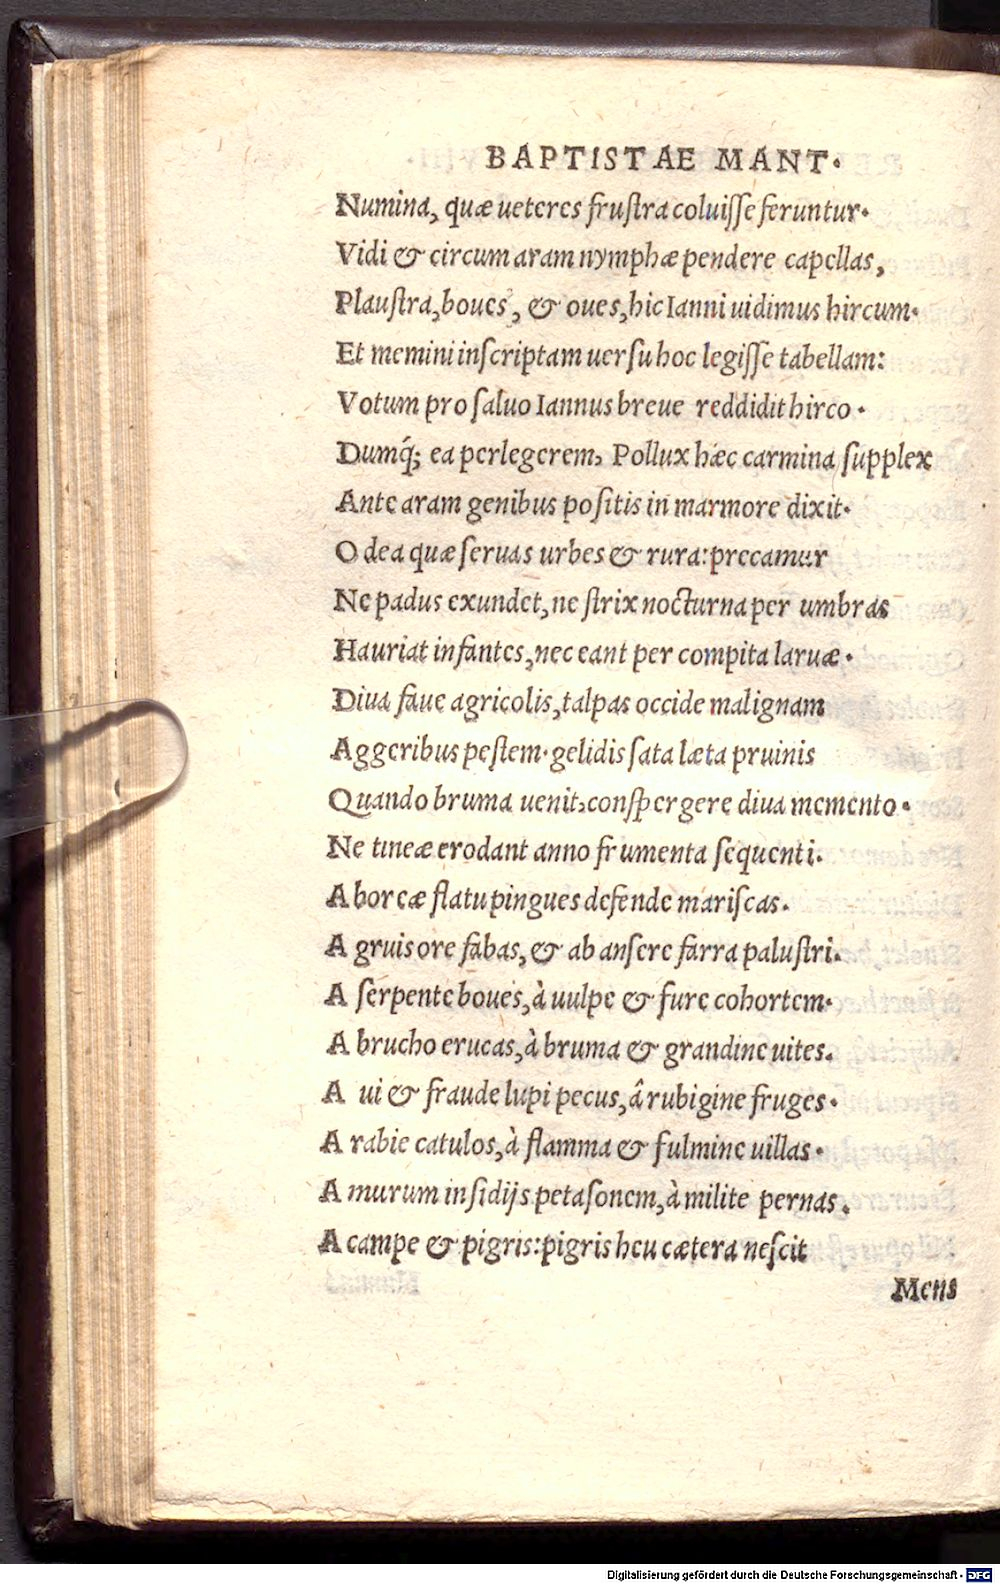 BAPTISTAE MANT.
Numina, quæ ueteres fruſtra coluiſſe feruntur.
Vidi & circum aram nymphæ pendere capellas,
Plauſtra, boues, & oues, hic Ianni uidimus hircum.
Et memini inſcriptam uerſu hoc legiſſe tabellam:
Votum pro ſaluo Iannus breue reddidit hirco.
Dumq́; ea perlegerem, Pollux hæc carmina ſupplex
Ante aram genibus poſitis in marmore dixit.
O dea quæ ſeruas urbes & rura: precamur
Ne padus exundet, ne ſtrix nocturna per umbras
Hauriat infantes, nec eant per compita laruæ.
Diua faue agricolis, talpas occide malignam
Aggeribus peſtem. gelidis ſata læta pruinis
Quando bruma uenit, conſpergere diua memento.
Ne tineæ erodant anno frumenta ſequenti.
A boreæ flatu pingues defende mariſcas.
A gruis ore fabas, & ab anſere farra paluſtri.
A ſerpente boues, à uulpe & fure cohortem.
A brucho erucas, à bruma & grandine uites.
A ui & fraude lupi pecus, â rubigine fruges.
A rabie catulos, à flamma & fulmine uillas.
A murum inſidijs petaſonem, à milite pernas.
A campe & pigris: pigris heu cætera neſcit
Mens
Digitalisierung gefördert durch die Deutsche Forschungsgemeinschaft - DFG